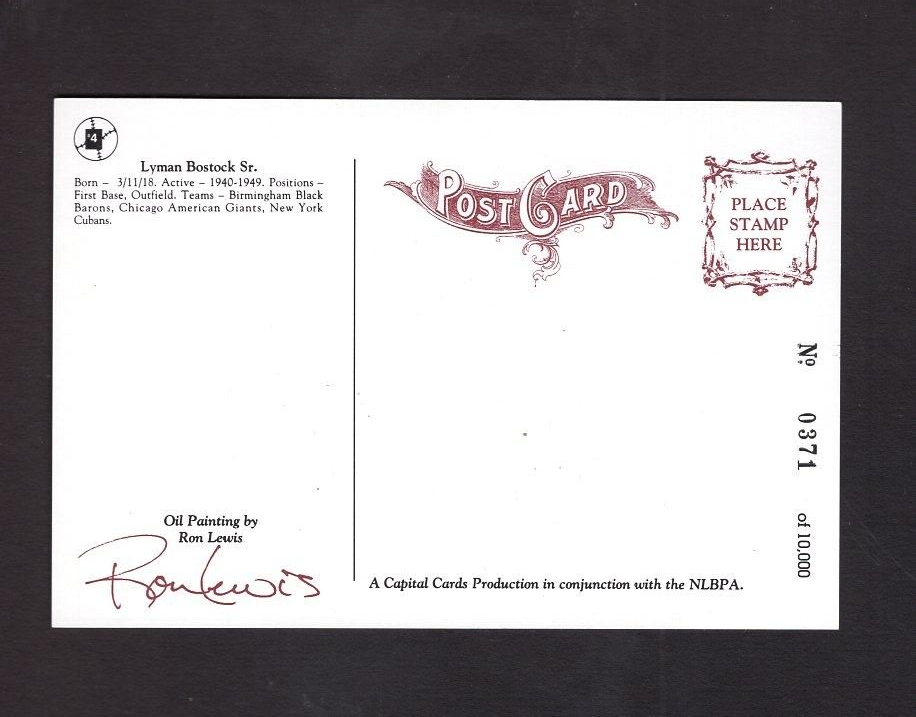 #4
Lyman Bostock Sr.
Born – 3/11/18. Active – 1940-1949. Positions –
First Base, Outfield. Teams – Birmingham Black
Barons, Chicago American Giants, New York
Cubans.
Oil Painting by
Ron Lewis
Ron Lewis
POST CARD
PLACE
STAMP
HERE
Nº 0371 of 10,000
A Capital Cards Production in conjunction with the NLBPA.